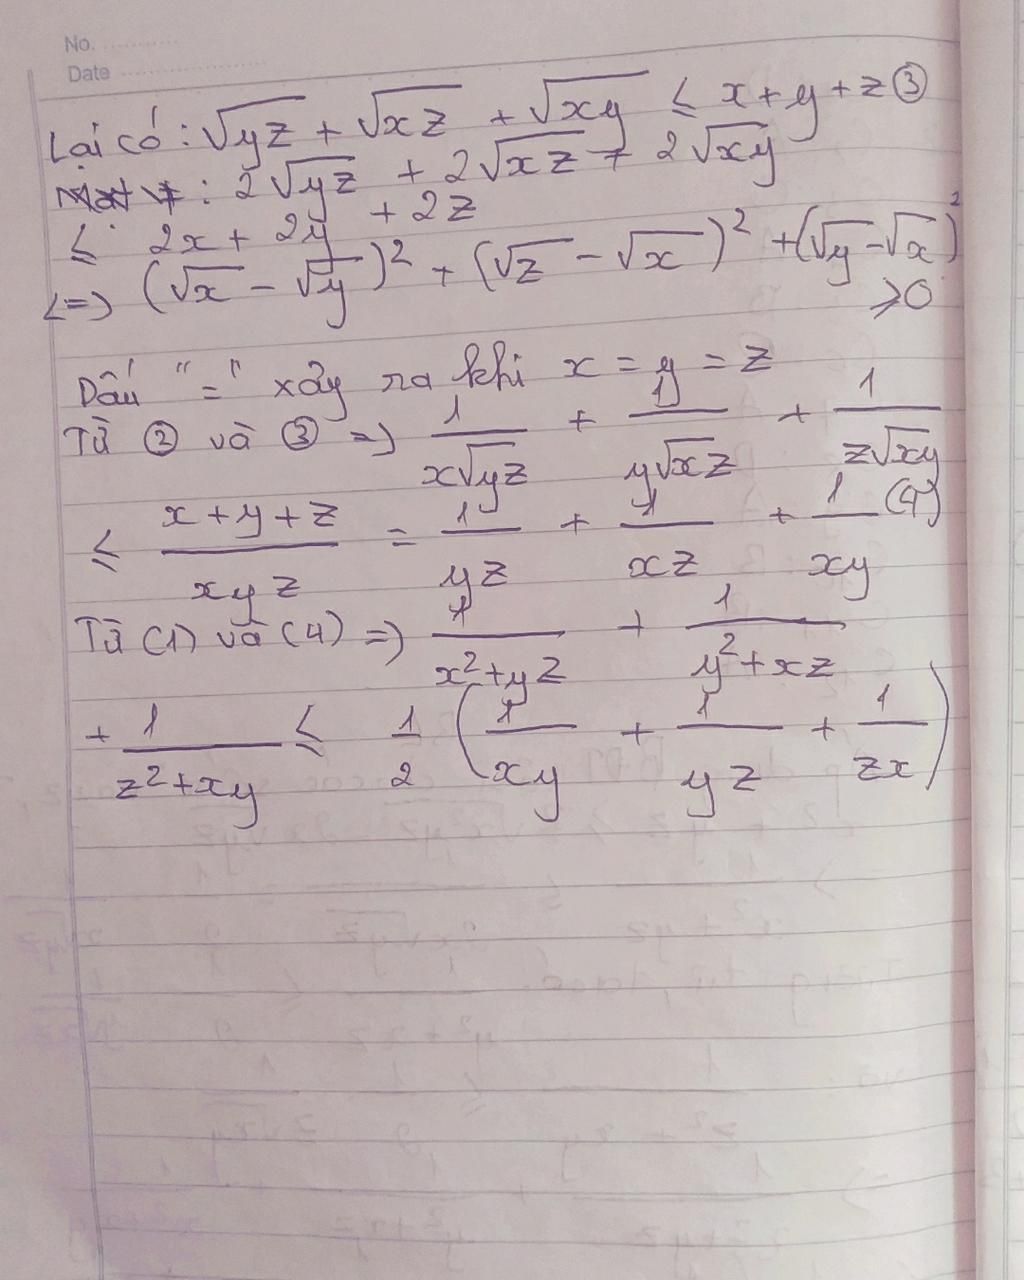 No. ............
Date ....................
Lại có: √yz + √xz + √xy ≤ x + y + z ③
: 2√yz + 2√xz + 2√xy
≤ 2x + 2y + 2z
<=> (√x - √y)² + (√z - √x)² + (√y - √x)²
≥ 0
Dấu "=" xảy ra khi x = y = z
Từ ② và ③ => 1/(x√yz) + 1/(y√xz) + 1/(z√xy)
≤ (x+y+z)/(xyz) = 1/(yz) + 1/(xz) + 1/(xy) (4)
Từ (1) và (4) => 1/(x²+yz) + 1/(y²+xz)
+ 1/(z²+xy) ≤ 1/2 (1/(xy) + 1/(yz) + 1/(zx))